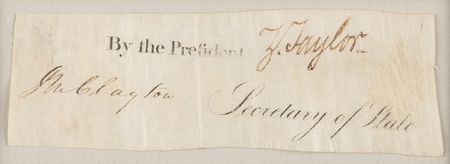 By the Preſident Z. Taylor
Jno M Clayton Secretary of State